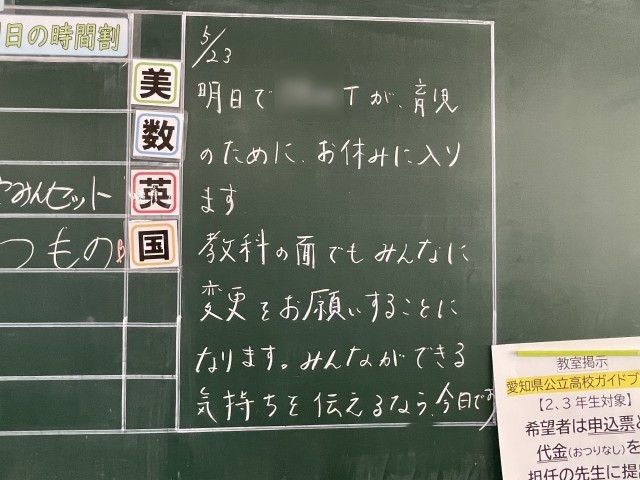 日の時間割
美
数
英
国
みんセット
つもの
5/23
明日で Tが、育児
のために、お休みに入り
ます
教科の面でもみんなに
変更をお願いすることに
なります。みんなができる
気持ちを伝えるなら、今日です
教室掲示
愛知県公立高校ガイドブ
【2、3年生対象】
希望者は申込票と
代金(おつりなし)を
担任の先生に提出